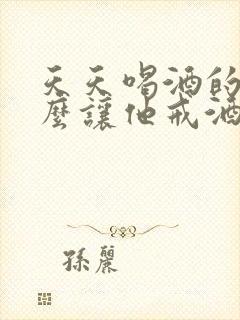 天天喝酒的
麼讓他戒酒
孫麗